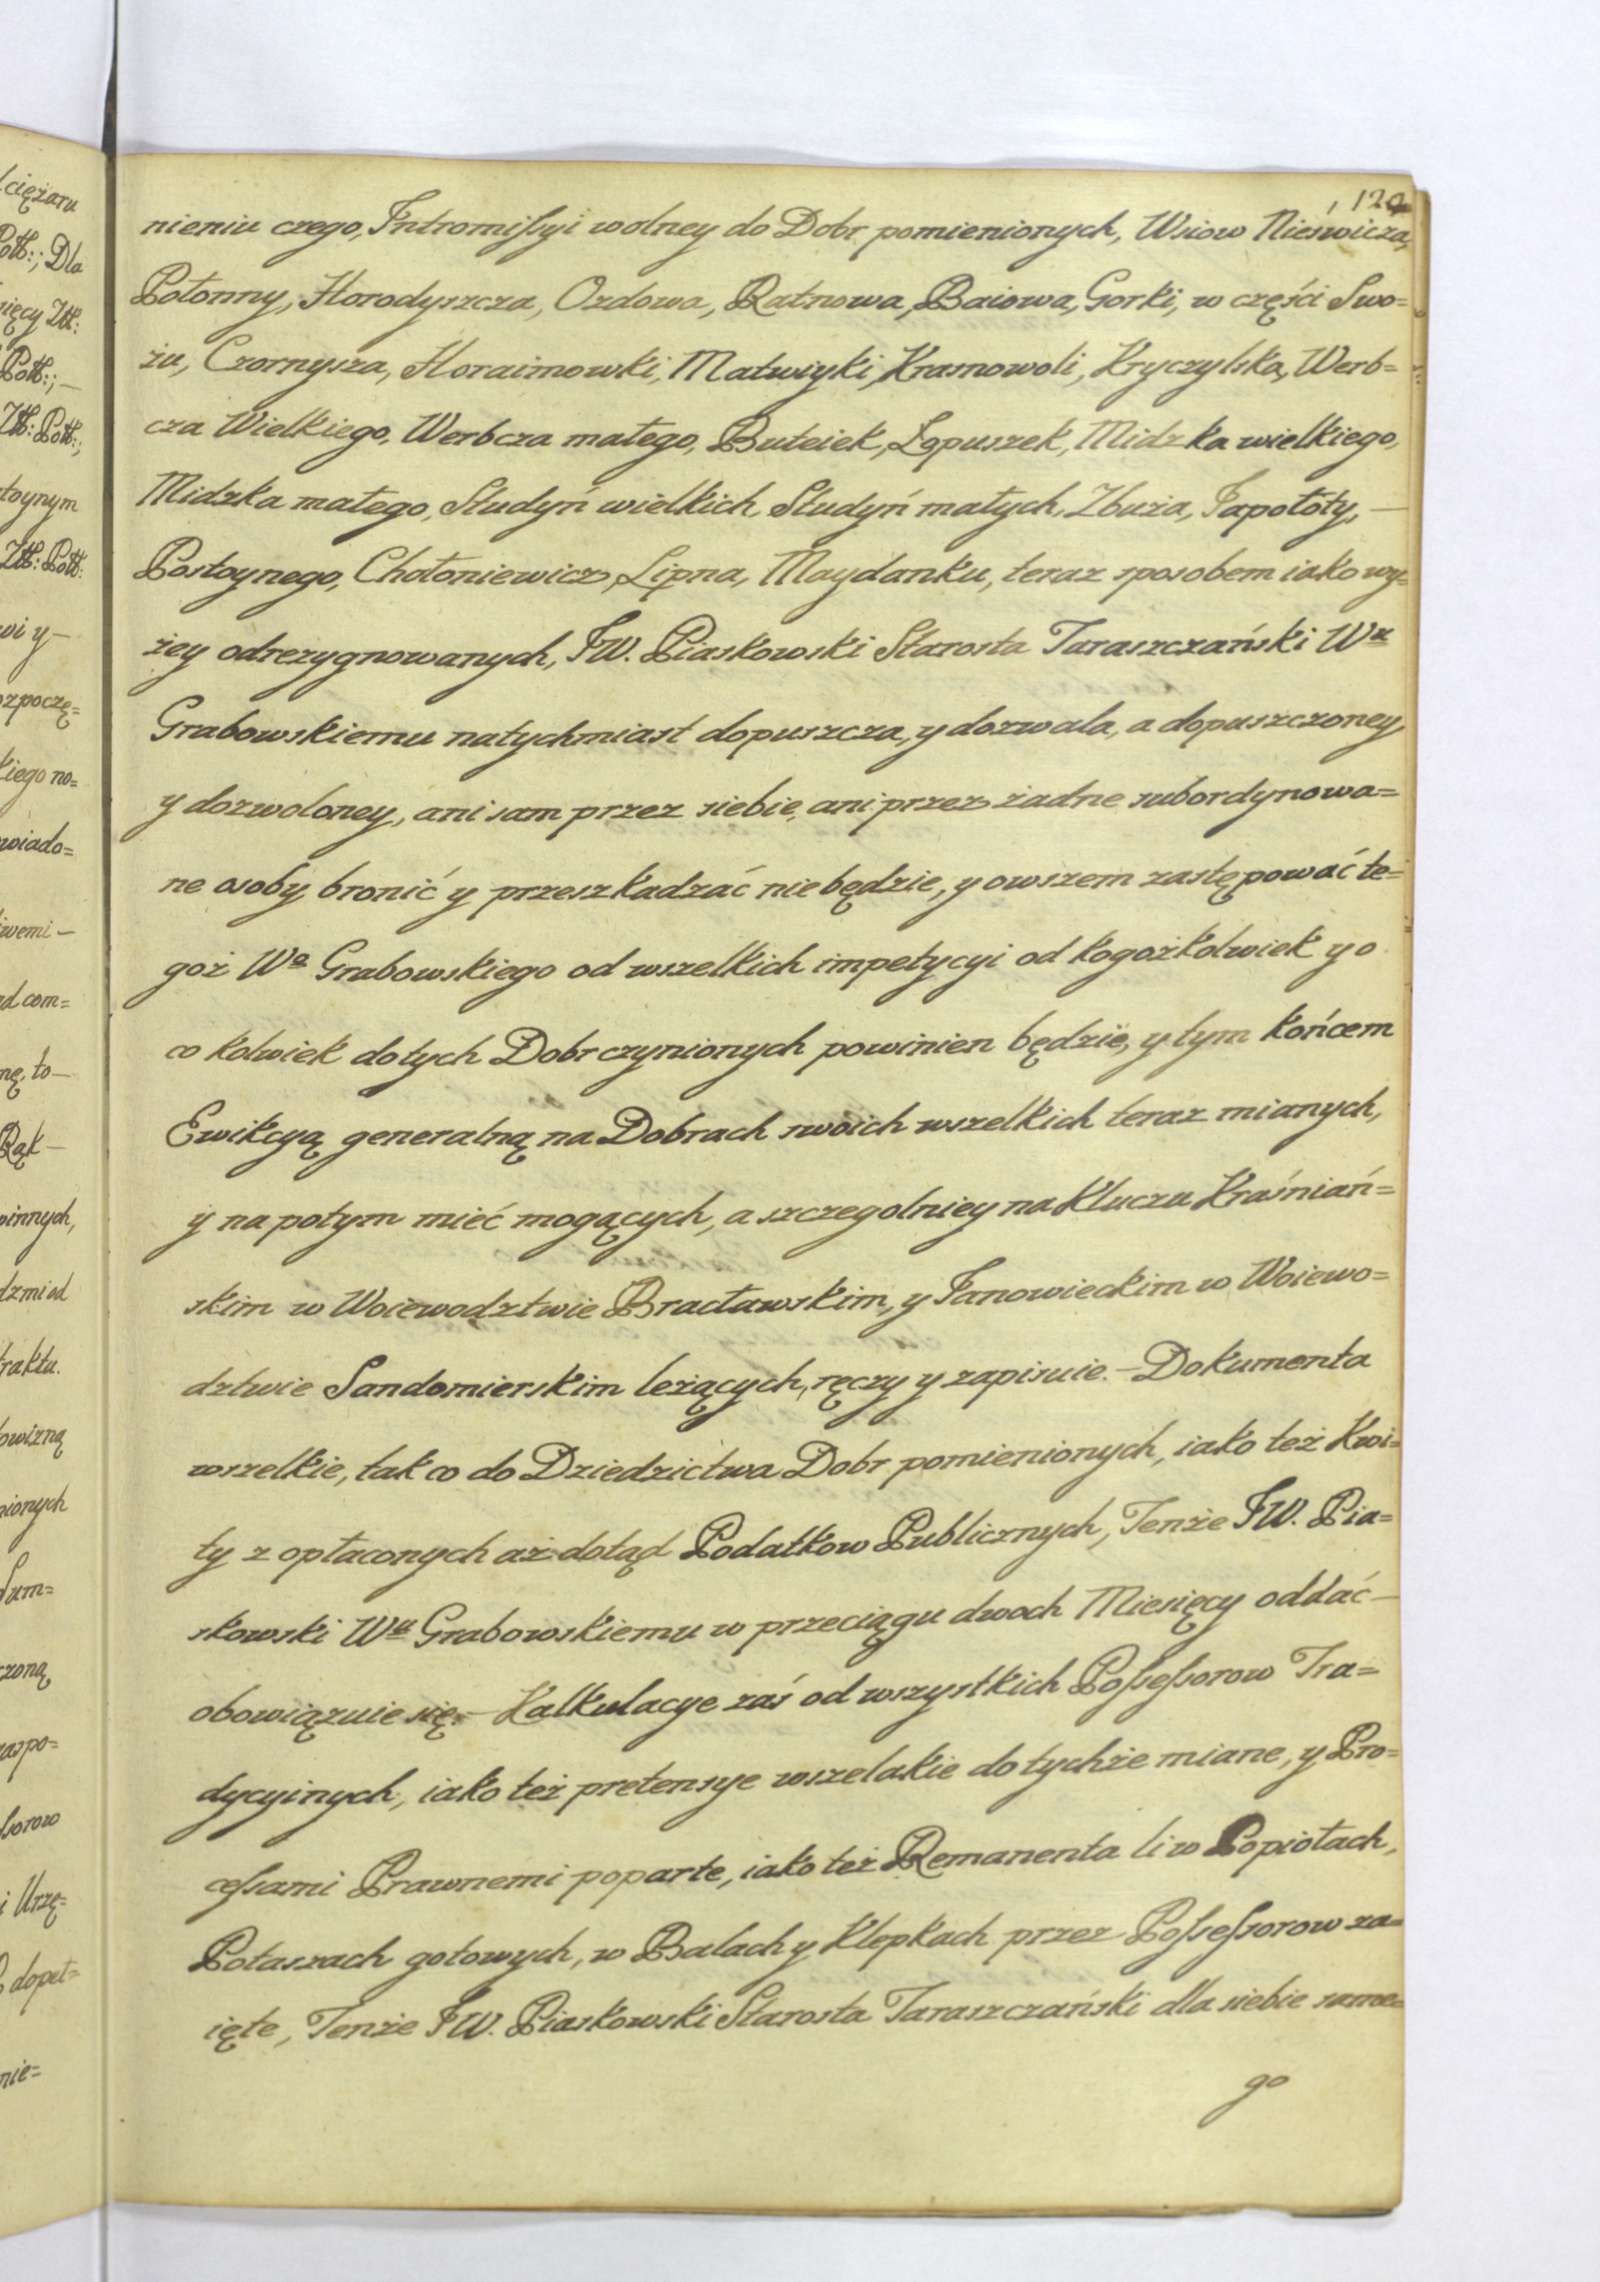 nieniu czego, Intromissyi wolney do Dobr pomienionych, Wsiow Nieświcza,
Połonny, Horodyszcza, Ozdowa, Ratnowa, Baiowa, Gorki, w części Swo=
zu, Czornysza, Horaimowki, Matwiyki, Krasnowoli, Kryczylska, Werb=
cza Wielkiego, Werbcza małego, Buteiek, Łopuszek, Midzka wielkiego,
Midzka małego, Studyń wielkich, Studyń małych, Zbuża, Japołoty, —
Postoynego, Chołoniewicz, Lipna, Maydanku, teraz sposobem iako wy=
żey odrezygnowanych, JW. Piaskowski Starosta Taraszczański Wu
Grabowskiemu natychmiast dopuszcza, y dozwala, a dopuszczoney
y dozwoloney, ani sam przez siebie, ani przez żadne subordynowa=
ne osoby bronić y przeszkadzać nie będzie, y owszem zastępować te=
goż Wo Grabowskiego od wszelkich impetycyi od kogożkolwiek y o
co kolwiek do tych Dobr czynionych powinien będzie, y tym końcem
Ewikcyą generalną na Dobrach swoich wszelkich teraz mianych,
y na potym mieć mogących, a szczegolniey na Kluczu Kraśniań=
skim w Woiewodztwie Bracławskim, y Janowieckim w Woiewo=
dztwie Sandomierskim leżących, ręczy y zapisuie. — Dokumenta
wszelkie, tak co do Dziedzictwa Dobr pomienionych, iako też Kwi=
ty z opłaconych aż dotąd Podatkow Publicznych, Tenże JW. Pia=
skowski Wu Grabowskiemu w przeciągu dwoch Miesięcy oddać —
obowiązuie się. — Kalkulacye zaś od wszystkich Possessorow Tra=
dycyinych, iako też pretensye wszelakie do tychże miane, y Pro=
cessami Prawnemi poparte, iako też Remanenta li w Popiołach,
Potaszach gotowych, w Balach y Klepkach przez Possessorow za=
ięte, Tenże JW. Piaskowski Starosta Taraszczański dla siebie same=
go